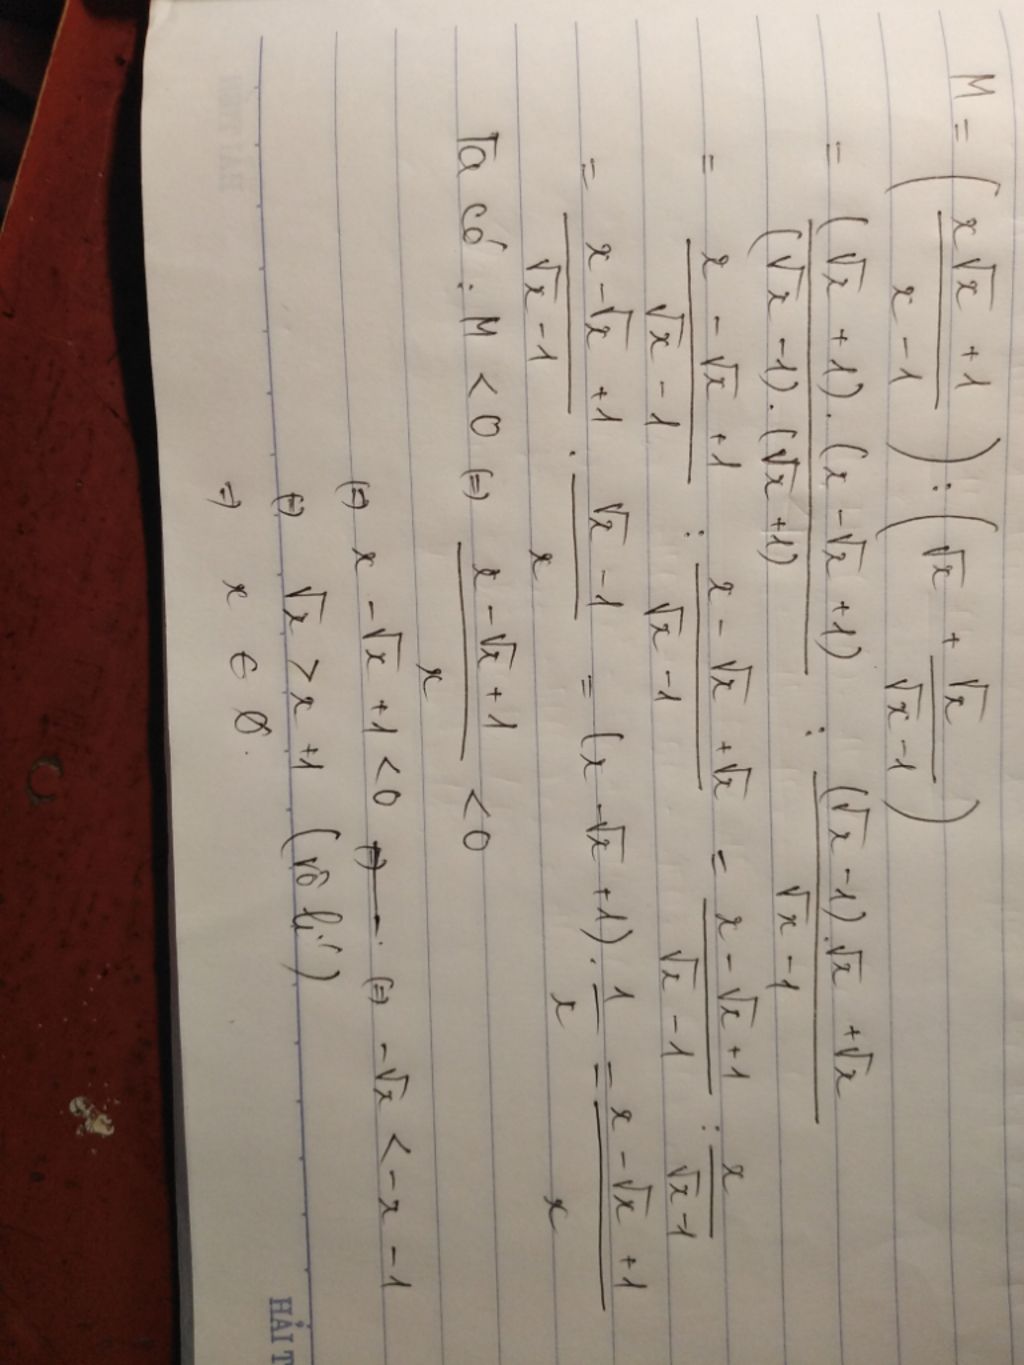 M = ( (x√x + 1)/(x - 1) ) : ( √x + √x/(√x - 1) )
= ((√x + 1).(x - √x + 1))/((√x - 1).(√x + 1)) : ((√x - 1).√x + √x)/(√x - 1)
= (x - √x + 1)/(√x - 1) : (x - √x + √x)/(√x - 1) = (x - √x + 1)/(√x - 1) : x/(√x - 1)
= (x - √x + 1)/(√x - 1) . (√x - 1)/x = (x - √x + 1) . 1/x = (x - √x + 1)/x
Ta có : M < 0 (=) (x - √x + 1)/x < 0
(=) x - √x + 1 < 0 (=) - √x < - x - 1
(=) √x > x + 1 (vô lí)
=) x ∈ ∅.
HẢI T